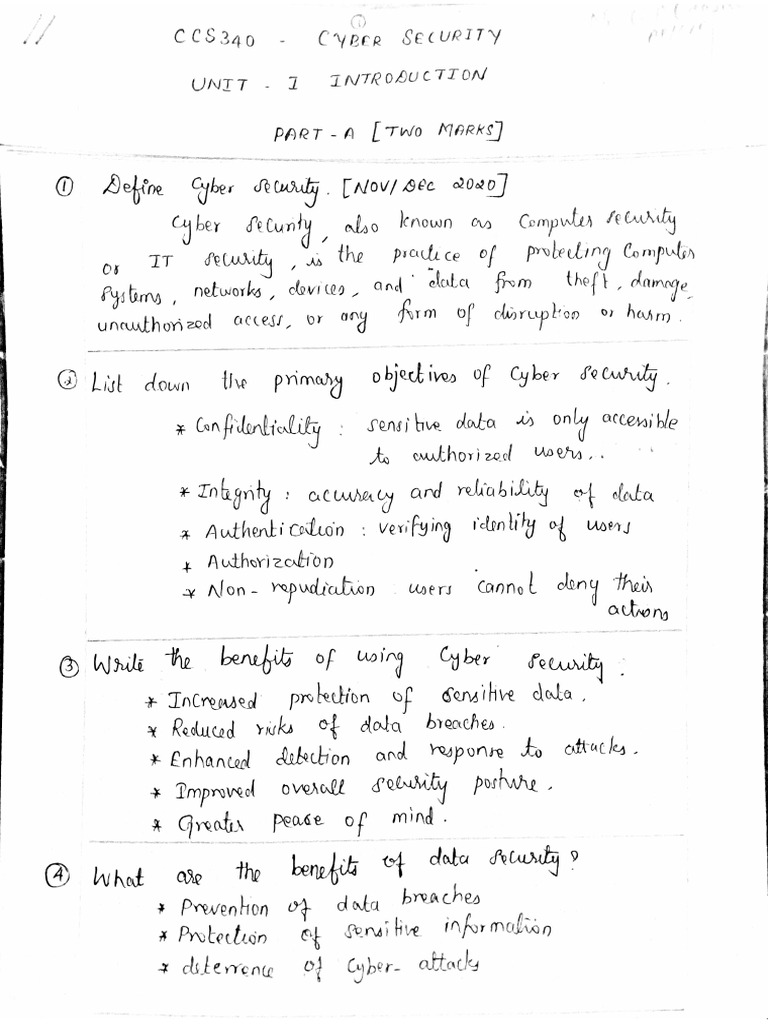 ①
CCS340 - CYBER SECURITY
UNIT - I INTRODUCTION
PART-A [TWO MARKS]
① Define Cyber Security. [NOV/DEC 2020]
Cyber Security, also known as Computer Security
or IT Security, is the practice of protecting Computer
Systems, networks, devices, and data from theft, damage,
unauthorized access, or any form of disruption or harm.
② List down the primary objectives of Cyber Security.
* Confidentiality : sensitive data is only accessible
to authorized users..
* Integrity : accuracy and reliability of data
* Authentication : verifying identity of users
* Authorization
* Non-repudiation : users cannot deny their
actions
③ Write the benefits of using Cyber Security.
* Increased protection of sensitive data.
* Reduced risks of data breaches.
* Enhanced detection and response to attacks.
* Improved overall security posture.
* Greater peace of mind.
④ What are the benefits of data security?
* Prevention of data breaches
* Protection of sensitive information
* deterrence of Cyber-attacks